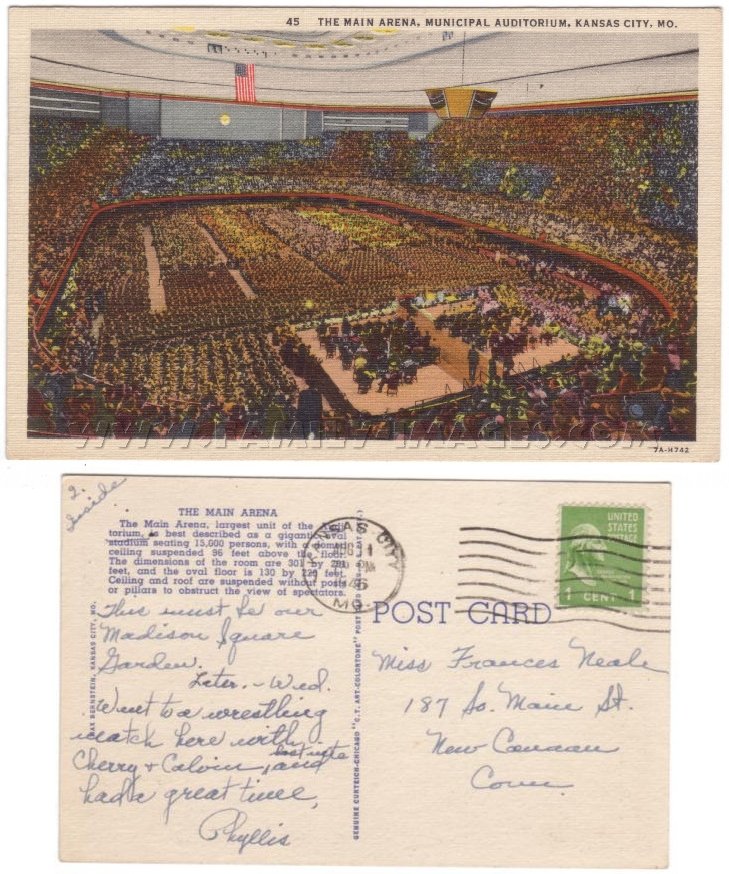 45 THE MAIN ARENA, MUNICIPAL AUDITORIUM, KANSAS CITY, MO.
WWW.JFAMILY-IMAGES.COM
7A-H742
2.
Inside
THE MAIN ARENA
The Main Arena, largest unit of the Audi-
torium, is best described as a gigantic oval
stadium seating 15,000 persons, with a domed
ceiling suspended 96 feet above the floor.
The dimensions of the room are 301 by 280
feet, and the oval floor is 130 by 220 feet.
Ceiling and roof are suspended without posts
or pillars to obstruct the view of spectators.
This must be our
Madison Square
Garden.
Later. - Wed.
Went to a wrestling
match here with
Cherry & Calvin, and
had a great time,
Phyllis
MAX BERNSTEIN, KANSAS CITY, MO.
GENUINE CURTEICH-CHICAGO "C.T. ART-COLORTONE" POST CARD
KANSAS CITY
1
PM
MO.
POST CARD
UNITED
STATES
POSTAGE
1 CENT 1
Miss Frances Neale
187 So. Main St.
New Canaan
Conn.